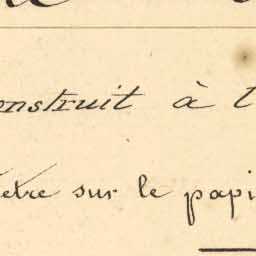 onstruit à l
etre sur le papi